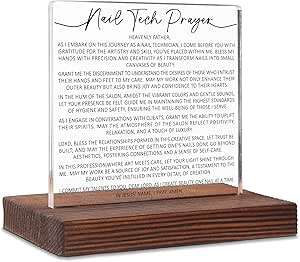 Nail Tech Prayer
HEAVENLY FATHER,
AS I EMBARK ON THIS JOURNEY AS A NAIL TECHNICIAN, I COME BEFORE YOU WITH
GRATITUDE FOR THE ARTISTRY AND SKILL YOU'VE PLACED WITHIN ME. BLESS MY
HANDS WITH PRECISION AND CREATIVITY AS I TRANSFORM NAILS INTO SMALL
CANVASES OF BEAUTY.
GRANT ME THE DISCERNMENT TO UNDERSTAND THE DESIRES OF THOSE WHO ENTRUST
THEIR HANDS AND FEET TO MY CARE. MAY MY WORK NOT ONLY ENHANCE THEIR
OUTER BEAUTY BUT ALSO BRING JOY AND CONFIDENCE TO THEIR HEARTS.
IN THE HUM OF THE SALON, AMIDST THE VIBRANT COLORS AND GENTLE SOUNDS,
LET YOUR PRESENCE BE FELT. GUIDE ME IN MAINTAINING THE HIGHEST STANDARDS
OF HYGIENE AND SAFETY, ENSURING THE WELL-BEING OF THOSE I SERVE.
AS I ENGAGE IN CONVERSATIONS WITH CLIENTS, GRANT ME THE ABILITY TO UPLIFT
THEIR SPIRITS. MAY THE ATMOSPHERE OF THE SALON REFLECT POSITIVITY,
RELAXATION, AND A TOUCH OF LUXURY.
LORD, BLESS THE RELATIONSHIPS FORMED IN THIS CREATIVE SPACE. LET TRUST BE
BUILT, AND MAY THE EXPERIENCE OF GETTING ONE'S NAILS DONE GO BEYOND
AESTHETICS, FOSTERING CONNECTIONS AND A SENSE OF SELF-CARE.
IN THIS PROFESSION, WHERE ART MEETS CARE, LET YOUR LIGHT SHINE THROUGH
ME. MAY MY WORK BE A SOURCE OF JOY AND SATISFACTION, A TESTAMENT TO THE
BEAUTY YOU'VE INSTILLED IN EVERY DETAIL OF CREATION.
I COMMIT MY TALENTS TO YOU, DEAR LORD, AS I CREATE BEAUTY ONE NAIL AT A TIME.
IN JESUS' NAME, I PRAY. AMEN.